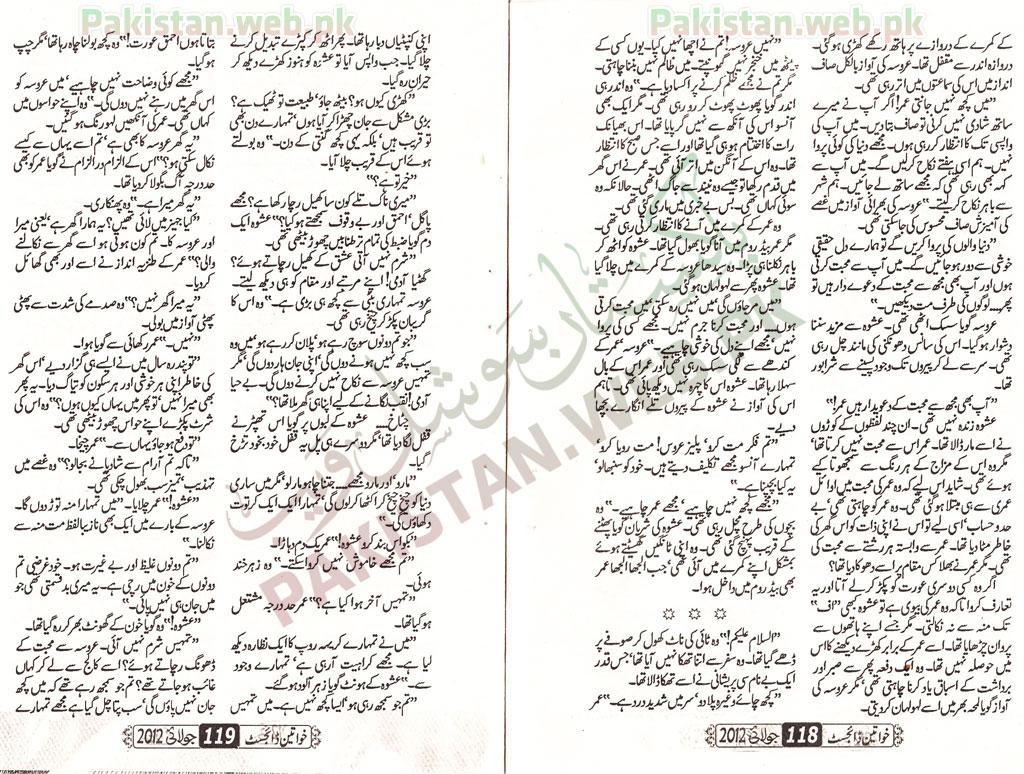 Pakistan.web.pk
کے کمرے کے دروازے پر ہاتھ رکھے کھڑی ہو گئی
دروازہ اندر سے مقفل تھا۔ عروسہ کی آواز بالکل صاف
انداز میں اس کی سماعتوں میں اتر رہی تھی۔
”میں کچھ نہیں جانتی عمر! اگر آپ نے میرے
ساتھ شادی نہیں کرنی تو صاف بتا دیں۔ میں آپ کی
واپسی تک کا انتظار کر رہی ہوں۔ مجھے دنیا کی کوئی پروا
نہیں۔ ہم اسی ہفتے نکاح کر لیں گے۔ میں آپ سے
کہہ بھی رہی تھی کہ مجھے ساتھ لے جائیں۔ ہم شہر
سے باہر نکاح کر لیتے۔“ عروسہ کی بھرائی آواز میں غصے
کی آمیزش صاف محسوس کی جا سکتی تھی۔
”دنیا والوں کی پروا کریں گے تو ہمارے دل حقیقی
خوشی سے دور ہو جائیں گے۔ میں آپ سے محبت کرتی
ہوں اور آپ بھی مجھ سے محبت کے دعوے دار ہیں تو
پھر۔ لوگوں کی طرف مت دیکھیں۔“
عروسہ گویا سسک اٹھی تھی۔ عشوہ سے مزید سننا
دشوار ہو گیا۔ اس کی سانس دھونکنی کی مانند چل رہی
تھی۔ سر سے لے کر پیروں تک وجود پسینے سے شرابور
تھا۔
”آپ بھی مجھ سے محبت کے دعویدار ہیں عمر!“
عشوہ زندہ نہیں تھی۔ ان چند لفظوں کے کوڑوں
نے اسے مار ڈالا تھا۔ عمر اس سے محبت نہیں کرتا تھا
مگر وہ اس کے مزاج کے ہر رنگ سے سمجھوتا کیے
ہوئے تھی۔ شاید اس لیے کہ وہ عمر کی محبت میں اوائل
عمری سے ہی مبتلا ہو گئی تھی۔ وہ عمر کو چاہتی تھی’ بے
حد و حساب‘ اسی لیے تو اس نے اپنی ذات کو اس گھر کی
خاطر مٹا دیا تھا۔ عمر سے وابستہ ہر رشتے سے محبت کی
تھی۔ مگر عمر نے بھلا کس مقام پر اسے دھوکا دیا تھا؟
اگر وہ کسی دوسری عورت کو پکڑ کر لے آتا اور یہ
تعارف کرواتا کہ وہ عمر کی بیوی ہے تو عشوہ بھی ”اف“
تک منہ سے نہ نکالتی۔ مگر جسے اپنے ہاتھوں سے
پروان چڑھایا تھا۔ اسے عمر کے برابر کھڑے دیکھنے کا اس
میں حوصلہ نہیں تھا۔ وہ ایک دفعہ پھر سے صبر اور
برداشت کے اسباق یاد کرنا چاہتی تھی‘ مگر عروسہ کی
آواز گویا لمحہ بھر میں اسے لہولہان کر دیتی۔
”نہیں عروسہ! تم نے اچھا نہیں کیا۔ یوں کسی کے
پیٹھ میں خنجر نہیں گھونپتے۔ میں ظالم نہیں بننا چاہتی۔
مگر تم نے مجھے ظلم کرنے پر اکسا دیا ہے۔“ وہ اندر ہی
اندر گویا پھوٹ پھوٹ کر رو رہی تھی۔ مگر ایک بھی
آنسو اس کی آنکھ سے نہیں گر پایا تھا۔ اس بھیانک
رات کا اختتام ہو ہی گیا تھا اور اسے جس صبح کا انتظار
تھا۔ وہ اس کے آنگن میں اتر آئی تھی۔ عمر نے اس گھر
میں قدم رکھا تو جیسے وہ نیند سے جاگ اٹھی۔ حالانکہ وہ
سوئی کہاں تھی۔ بس بے خبری میں ماری گئی تھی۔
وہ عمر کے کمرے میں آنے کا انتظار کرتی رہی تھی۔
مگر عمر بیڈ روم میں آنا گویا بھول گیا تھا۔ عشوہ کو اٹھ کر
باہر نکلنا ہی پڑا۔ وہ سیدھا عروسہ کے کمرے میں چلا گیا
تھا۔ عشوہ پھر سے لہولہان ہو گئی۔
”میں مر جاؤں گی‘ میں نہیں رہ سکتی‘ میں محبت کرتی
ہوں... اور محبت کرنا جرم نہیں۔ مجھے کسی کی پروا
نہیں‘ مجھے اپنے دل کی خوشی چاہیے۔“ عروسہ‘ عمر کے
کندھے سے لگی بلک رہی تھی اور عمر اس کے بال
سہلا رہا تھا۔ عشوہ اس کا چہرہ نہیں دیکھ پائی تھی۔ تاہم
اس کی آواز نے عشوہ کے پیروں تلے انگارے بچھا
دیے۔
”تم فکر مت کرو‘ پلیز عروس! مت رویا کرو‘
تمہارے آنسو مجھے تکلیف دیتے ہیں۔ خود کو سنبھالو‘
یہ کیا بچپنا ہے۔“
”مجھے کچھ نہیں چاہیے‘ مجھے عمر چاہیے۔“ وہ
بچوں کی طرح مچل رہی تھی۔ عشوہ کی شریان گویا پھٹنے
کے قریب پہنچ گئی تھی۔ وہ اپنی ٹانگیں گھسیٹتے ہوئے
بمشکل اپنے کمرے میں آئی تھی‘ جب الجھا الجھا عمر
بھی بیڈ روم میں داخل ہوا۔
☼ ☼ ☼
”السلام علیکم!“ وہ ٹائی کی ناٹ کھول کر صوفے پر
ڈھے گیا تھا۔ وہ سفر سے اتنا تھکا نہیں آیا تھا‘ جس قدر
ایک بے نام کی پریشانی نے اسے تھکا ڈالا تھا۔
”کچھ چائے وغیرہ پلا دو‘ سر میں شدید درد ہے۔“ عمر
خواتین ڈائجسٹ 118 جولائی 2012
Pakistan.web.pk
اپنی کنپٹیاں دبا رہا تھا۔ پھر اٹھ کر کپڑے تبدیل کرنے
چلا گیا۔ جب واپس آیا تو عشوہ کو ہنوز کھڑے دیکھ کر
حیران رہ گیا۔
”کھڑی کیوں ہو؟ بیٹھ جاؤ‘ طبیعت تو ٹھیک ہے؟
بڑی مشکل سے جان چھڑا کر آیا ہوں‘ تمہارے دن بھی
تو قریب ہیں‘ بلکہ یہی کچھ گنتی کے دن۔“ وہ بولتے
ہوئے اس کے قریب چلا آیا۔
”خیر تو ہے؟“
”میری ناک تلے کون سا کھیل رچا رکھا ہے؟ مجھے
پاگل‘ احمق اور بے وقوف سمجھتے ہو کیا؟“ عشوہ ایک
دم گویا ضبط کی تمام تر طنابیں چھوڑ بیٹھی تھی۔
”شرم نہیں آتی عشق کے کھیل رچاتے ہوئے؟
گھٹیا آدمی! اپنے مرتبے اور مقام کو ہی دیکھ لیتے۔
عروسہ تمہاری بیٹی سے کچھ ہی بڑی ہے۔“ وہ اس کا
گریبان پکڑ کر چیخ رہی تھی۔
”جو تم دونوں سوچ رہے ہو‘ پلان کر رہے ہو‘ میں وہ
سب کچھ نہیں ہونے دوں گی‘ اپنی جان ہار دوں گی‘ مگر
تمہیں عروسہ سے نکاح نہیں کرنے دوں گی۔ بے حیا
آدمی! نقب لگانے کے لیے اپنا ہی گھر ملا تھا؟“
چٹاخ... عشوہ کے لبوں پر گویا اس تھپڑ نے
قفل لگا دیا تھا‘ مگر دوسرے ہی پل یہ قفل خود بخود تڑخ
گیا۔
”مارو‘ اور مارو مجھے... جتنا چاہو مار لو‘ مگر میں ساری
دنیا کو چیخ چیخ کر اکٹھا کر لوں گی‘ تمہارا ایک ایک کرتوت
دکھاؤں گی۔“
”بکواس بند کرو عشوہ!“ عمر یک دم دہاڑا۔
”تم مجھے خاموش نہیں کروا سکتے۔“ وہ زہر خند
ہوئی۔
”تمہیں آخر ہوا کیا ہے؟“ عمر حد درجہ مشتعل
ہو گیا تھا۔
”میں نے تمہارے کریہہ روپ کا ایک نظارہ دیکھ
لیا ہے۔ مجھے کراہیت آ رہی ہے‘ تمہارے وجود
سے۔“ عشوہ کے ہونٹ گویا زہر آلود ہو گئے۔
”تم جو سمجھ رہی ہو‘ ایسا کچھ نہیں ہے۔ میں تمہیں
بتاتا ہوں احمق عورت!“ وہ کچھ بولنا چاہ رہا تھا‘ مگر چپ
ہو گیا۔
”مجھے کوئی وضاحت نہیں چاہیے‘ میں عروسہ کو
اس گھر میں رہنے نہیں دوں گی۔“ وہ اپنے حواسوں میں
کہاں تھی۔ عمر کی آنکھیں لہو رنگ ہو گئیں۔
”یہ گھر عروسہ کا بھی ہے‘ تم اسے یہاں سے کیسے
نکال سکتی ہو؟“ اس کے الزام در الزام نے گویا عمر کو بھی
حد درجہ آگ بگولا کر دیا تھا۔
”یہ گھر میرا ہے۔“ وہ پھنکاری۔
”کیا جہیز میں لائی تھیں؟ یہ ہمارا گھر ہے‘ یعنی میرا
اور عروسہ کا۔ تم کون ہوتی ہو اسے گھر سے نکالنے
والی؟“ عمر کے طنزیہ انداز نے اسے اور بھی گھائل
کر دیا۔
”یہ میرا گھر نہیں؟“ وہ صدمے کی شدت سے پھٹی
پھٹی آواز میں بولی۔
”نہیں۔“ عمر رکھائی سے گویا ہوا۔
”تو پندرہ سال میں نے ایسے ہی گزار دیے‘ اس گھر
کی خاطر اپنی ہر خوشی اور ہر سکون کو تیاگ دیا۔ یہ پھر
بھی میرا نہیں‘ تو پھر میں یہاں کیوں ہوں؟“ وہ اس کی
شرٹ پکڑے اپنے حواس چھوڑ بیٹھی تھی۔
”تو دفع ہو جاؤ یہاں سے۔“ عمر چیخا۔
”تاکہ تم آرام سے شادیانے بجا لو؟“ وہ غصے میں
تہذیب‘ تمیز سب بھول چکی تھی۔
”عشوہ!“ عمر چلایا۔ ”میں تمہارا منہ توڑ دوں گا۔
عروسہ کے بارے میں ایک بھی نازیبا لفظ مت منہ سے
نکالنا۔“
”تم دونوں غلیظ اور بے غیرت ہو۔ خود غرضی تم
دونوں کے خون میں رچی ہے۔ یہ میری بدقسمتی تھی جو
میں جان ہی نہیں پائی۔“
”عشوہ!“ وہ گویا خون کے گھونٹ بھر کر رہ گیا تھا۔
”تمہیں شرم نہیں آئی۔ عروسہ سے محبت کے
ڈھونگ رچاتے ہو؟ اسے کالج سے لے کر کہاں
غائب ہو جاتے تھے؟ تم جو سمجھ رہے تھے کہ میں کچھ
جان نہیں پاؤں گی‘ سب پتا چل گیا ہے مجھے تمہارے
خواتین ڈائجسٹ 119 جولائی 2012
پاکستانی سوشل ویب
PAKISTAN.WEB.PK